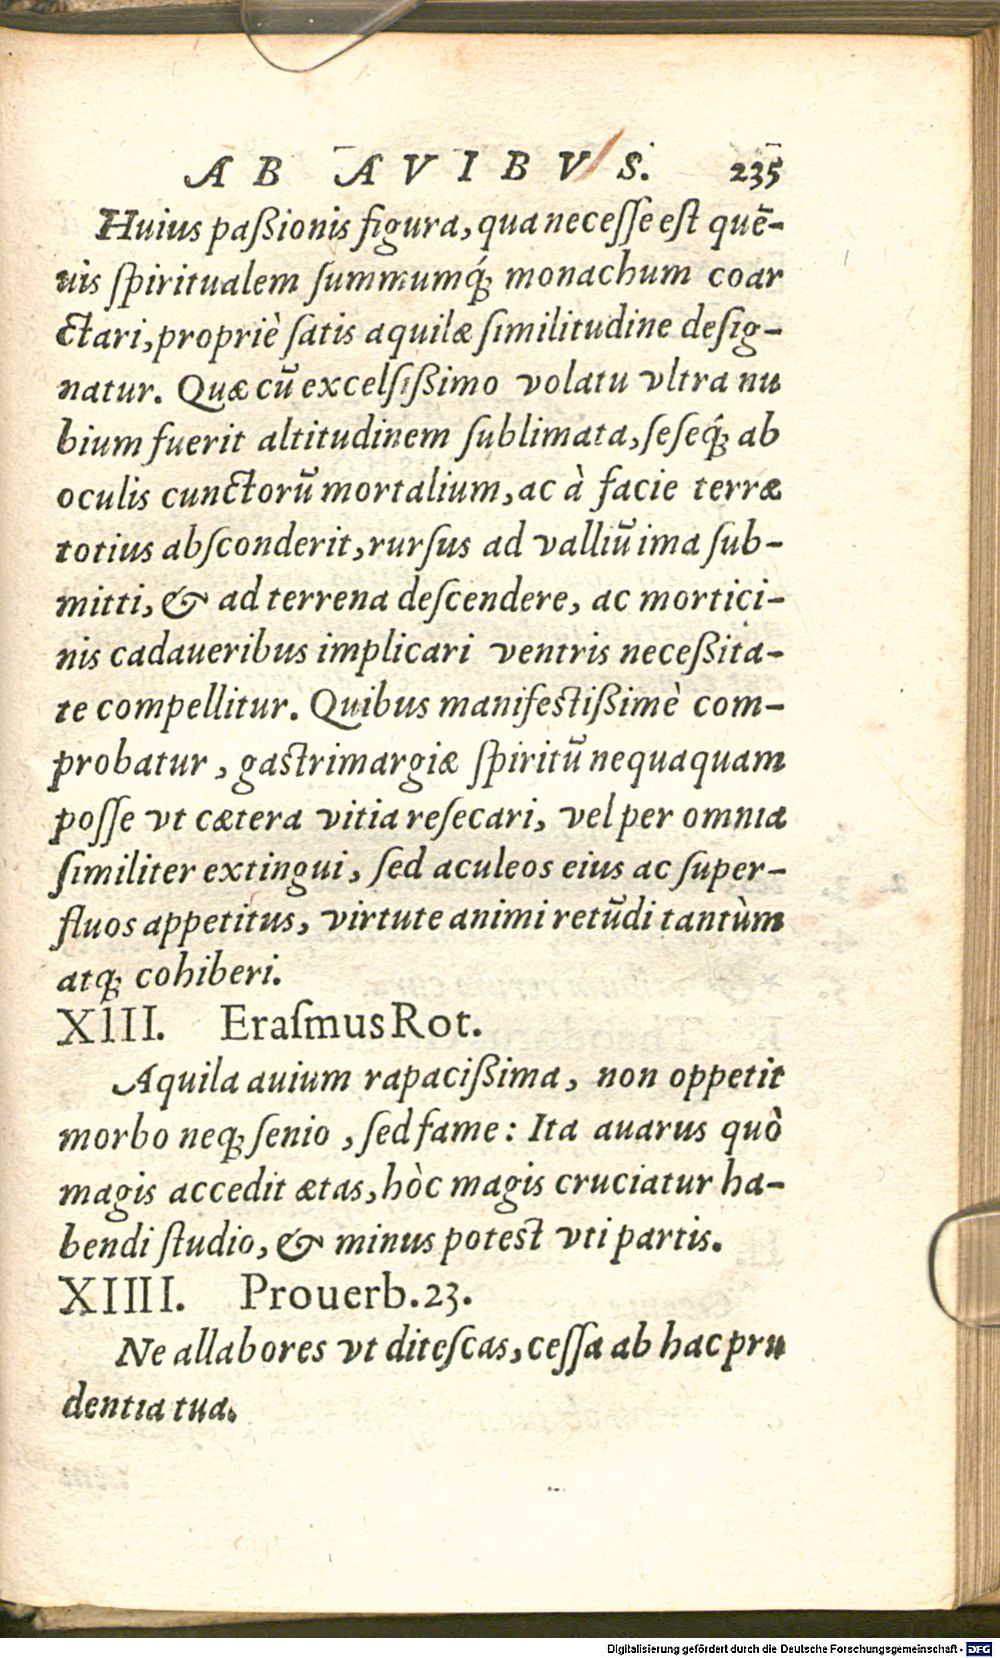 AB AVIBVS. 235
Huius paßionis figura, qua neceſſe eſt quē-
uis ſpiritualem ſummumq́; monachum coar
ctari, propriè ſatis aquilæ ſimilitudine deſig-
natur. Quæ cū excelſißimo volatu vltra nu
bium fuerit altitudinem ſublimata, ſeſeq́; ab
oculis cunctorū mortalium, ac à facie terræ
totius abſconderit, rurſus ad valliū ima ſub-
mitti, & ad terrena deſcendere, ac mortici-
nis cadaueribus implicari ventris neceßita-
te compellitur. Quibus manifeſtißimè com-
probatur, gaſtrimargiæ ſpiritū nequaquam
poſſe vt cætera vitia reſecari, vel per omnia
ſimiliter extingui, ſed aculeos eius ac ſuper-
fluos appetitus, virtute animi retūdi tantùm
atq; cohiberi.
XIII. Eraſmus Rot.
Aquila auium rapacißima, non oppetit
morbo neq; ſenio, ſed fame: Ita auarus quò
magis accedit ætas, hòc magis cruciatur ha-
bendi ſtudio, & minus poteſt vti partis.
XIIII. Prouerb. 23.
Ne allabores vt diteſcas, ceſſa ab hac pru
dentia tua.
Digitalisierung gefördert durch die Deutsche Forschungsgemeinschaft - DFG